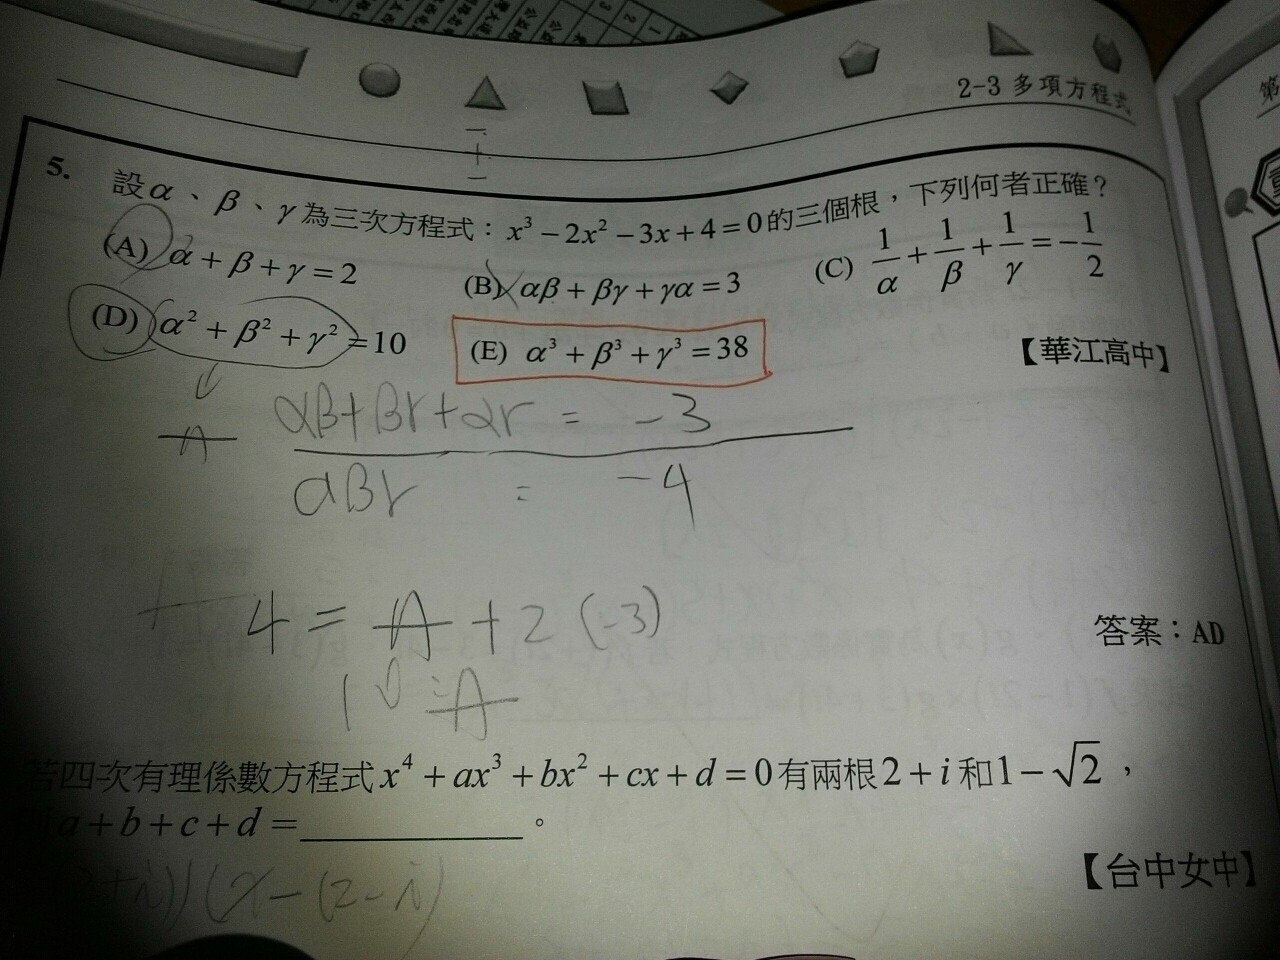 2-3 多項方程式
第
5. 設α、β、γ為三次方程式：x³－2x²－3x＋4＝0的三個根，下列何者正確？
(A) α＋β＋γ＝2 (B) αβ＋βγ＋γα＝3 (C) 1/α＋1/β＋1/γ＝－1/2
(D) α²＋β²＋γ²＝10 (E) α³＋β³＋γ³＝38
【華江高中】
A αβ+βr+αr = -3
αβr = -4
4 = A + 2 (-3)
10 = A
答案：AD
若四次有理係數方程式x⁴＋ax³＋bx²＋cx＋d＝0有兩根2＋i和1－√2，
a＋b＋c＋d＝__________。
【台中女中】
+i))(x-(2-i)